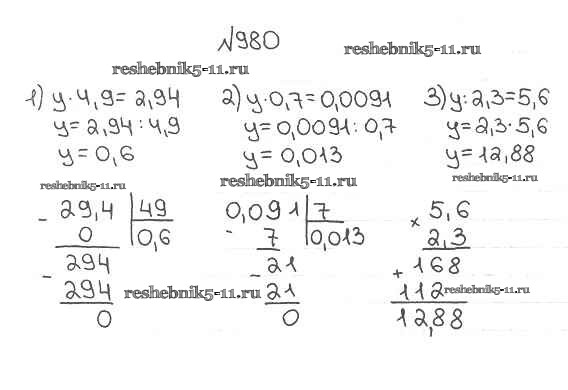 №980
reshebnik5-11.ru
reshebnik5-11.ru
1) y·4,9=2,94
y=2,94:4,9
y=0,6
reshebnik5-11.ru
- 29,4 | 49
0 | 0,6
- 294
294
0
reshebnik5-11.ru
2) y·0,7=0,0091
y=0,0091:0,7
y=0,013
reshebnik5-11.ru
0,091 | 7
- 7 | 0,013
- 21
21
0
3) y:2,3=5,6
y=2,3·5,6
y=12,88
reshebnik5-11.ru
× 5,6
2,3
+ 168
112
12,88
reshebnik5-11.ru